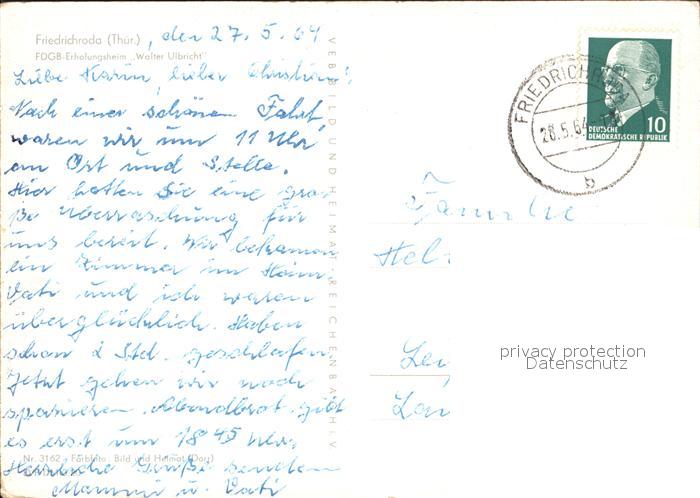 Friedrichroda (Thür.), den 27.5.64
FDGB-Erholungsheim „Walter Ulbricht"
Liebe Karin, lieber Christian!
Nach einer schönen Fahrt
waren wir um 11 Uhr
an Ort und Stelle.
Hier hatten Sie eine gro-
ße Überraschung für
uns bereit. Wir bekamen
ein Zimmer im Heim.
Vati und ich waren
überglücklich. Haben
schon 2 Std. geschlafen.
Jetzt gehen wir noch
spazieren. Abendbrot gibt
es erst um 18 45 Uhr.
Nr. 3162 Farbfoto: Bild und Heimat
Herzliche Grüße senden
Mammi u. Vati
VEB BILD UND HEIMAT REICHENBACH I. V.
FRIEDRICHRODA
28.5.64
b
10
DEUTSCHE
DEMOKRATISCHE REPUBLIK
Familie
Hel
Lei
privacy protection
Datenschutz